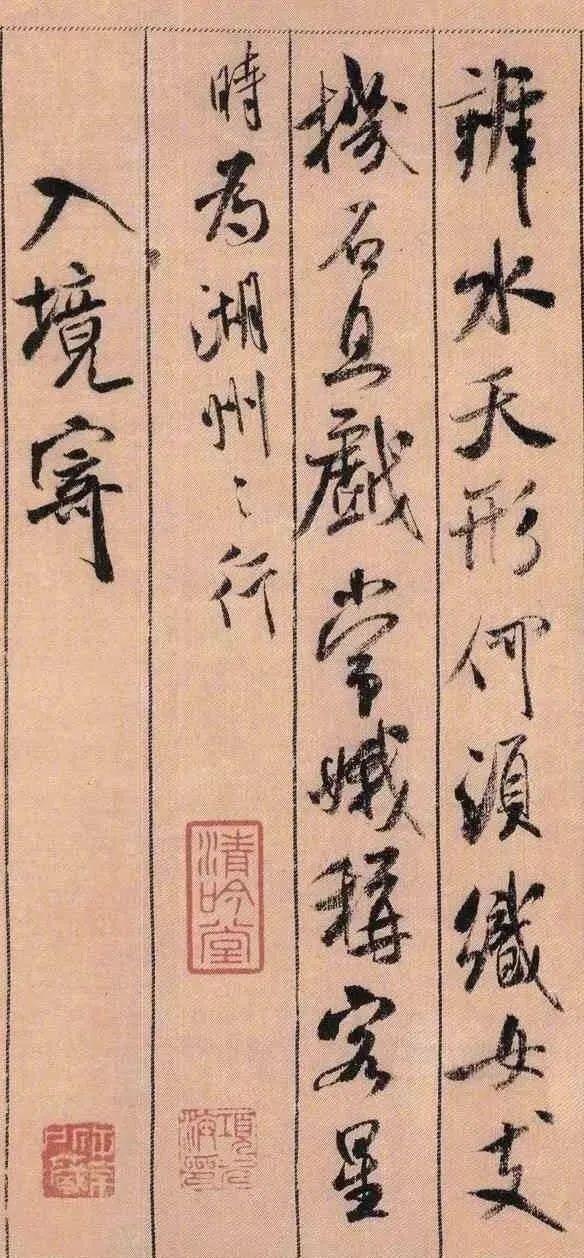 辨水天形何須織女支
機石且戲常娥稱客星
時為湖州之行
入境寄
清吟堂